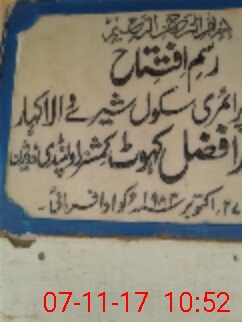 بسم اللہ الرحمن الرحیم
رسم افتتاح
پرائمری سکول شیرے والا کہار
افضل کہوٹ کمشنر راولپنڈی ڈویژن
۲۷۔ اکتوبر ۱۹۸۳ء کو ادا فرمائی۔
07-11-17 10:52